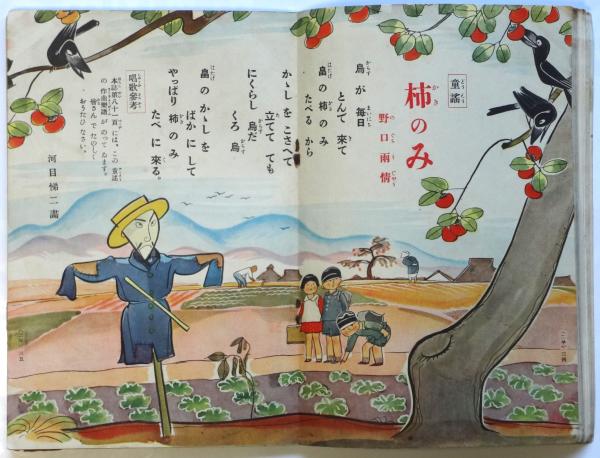 童謡
柿のみ
野口雨情
烏が毎日
とんで來て
畠の柿のみ
たべるから
かゝしをこさへて
立てゝても
にくらし烏だ
くろ烏
畠のかゝしを
ばかにして
やっぱり柿のみ
たべに來る。
唱歌參考
本誌第八十一頁には、この童謡
の作曲樂譜がのってゐます。
皆さんでたのしく
おうたひなさい。
河目悌二畫